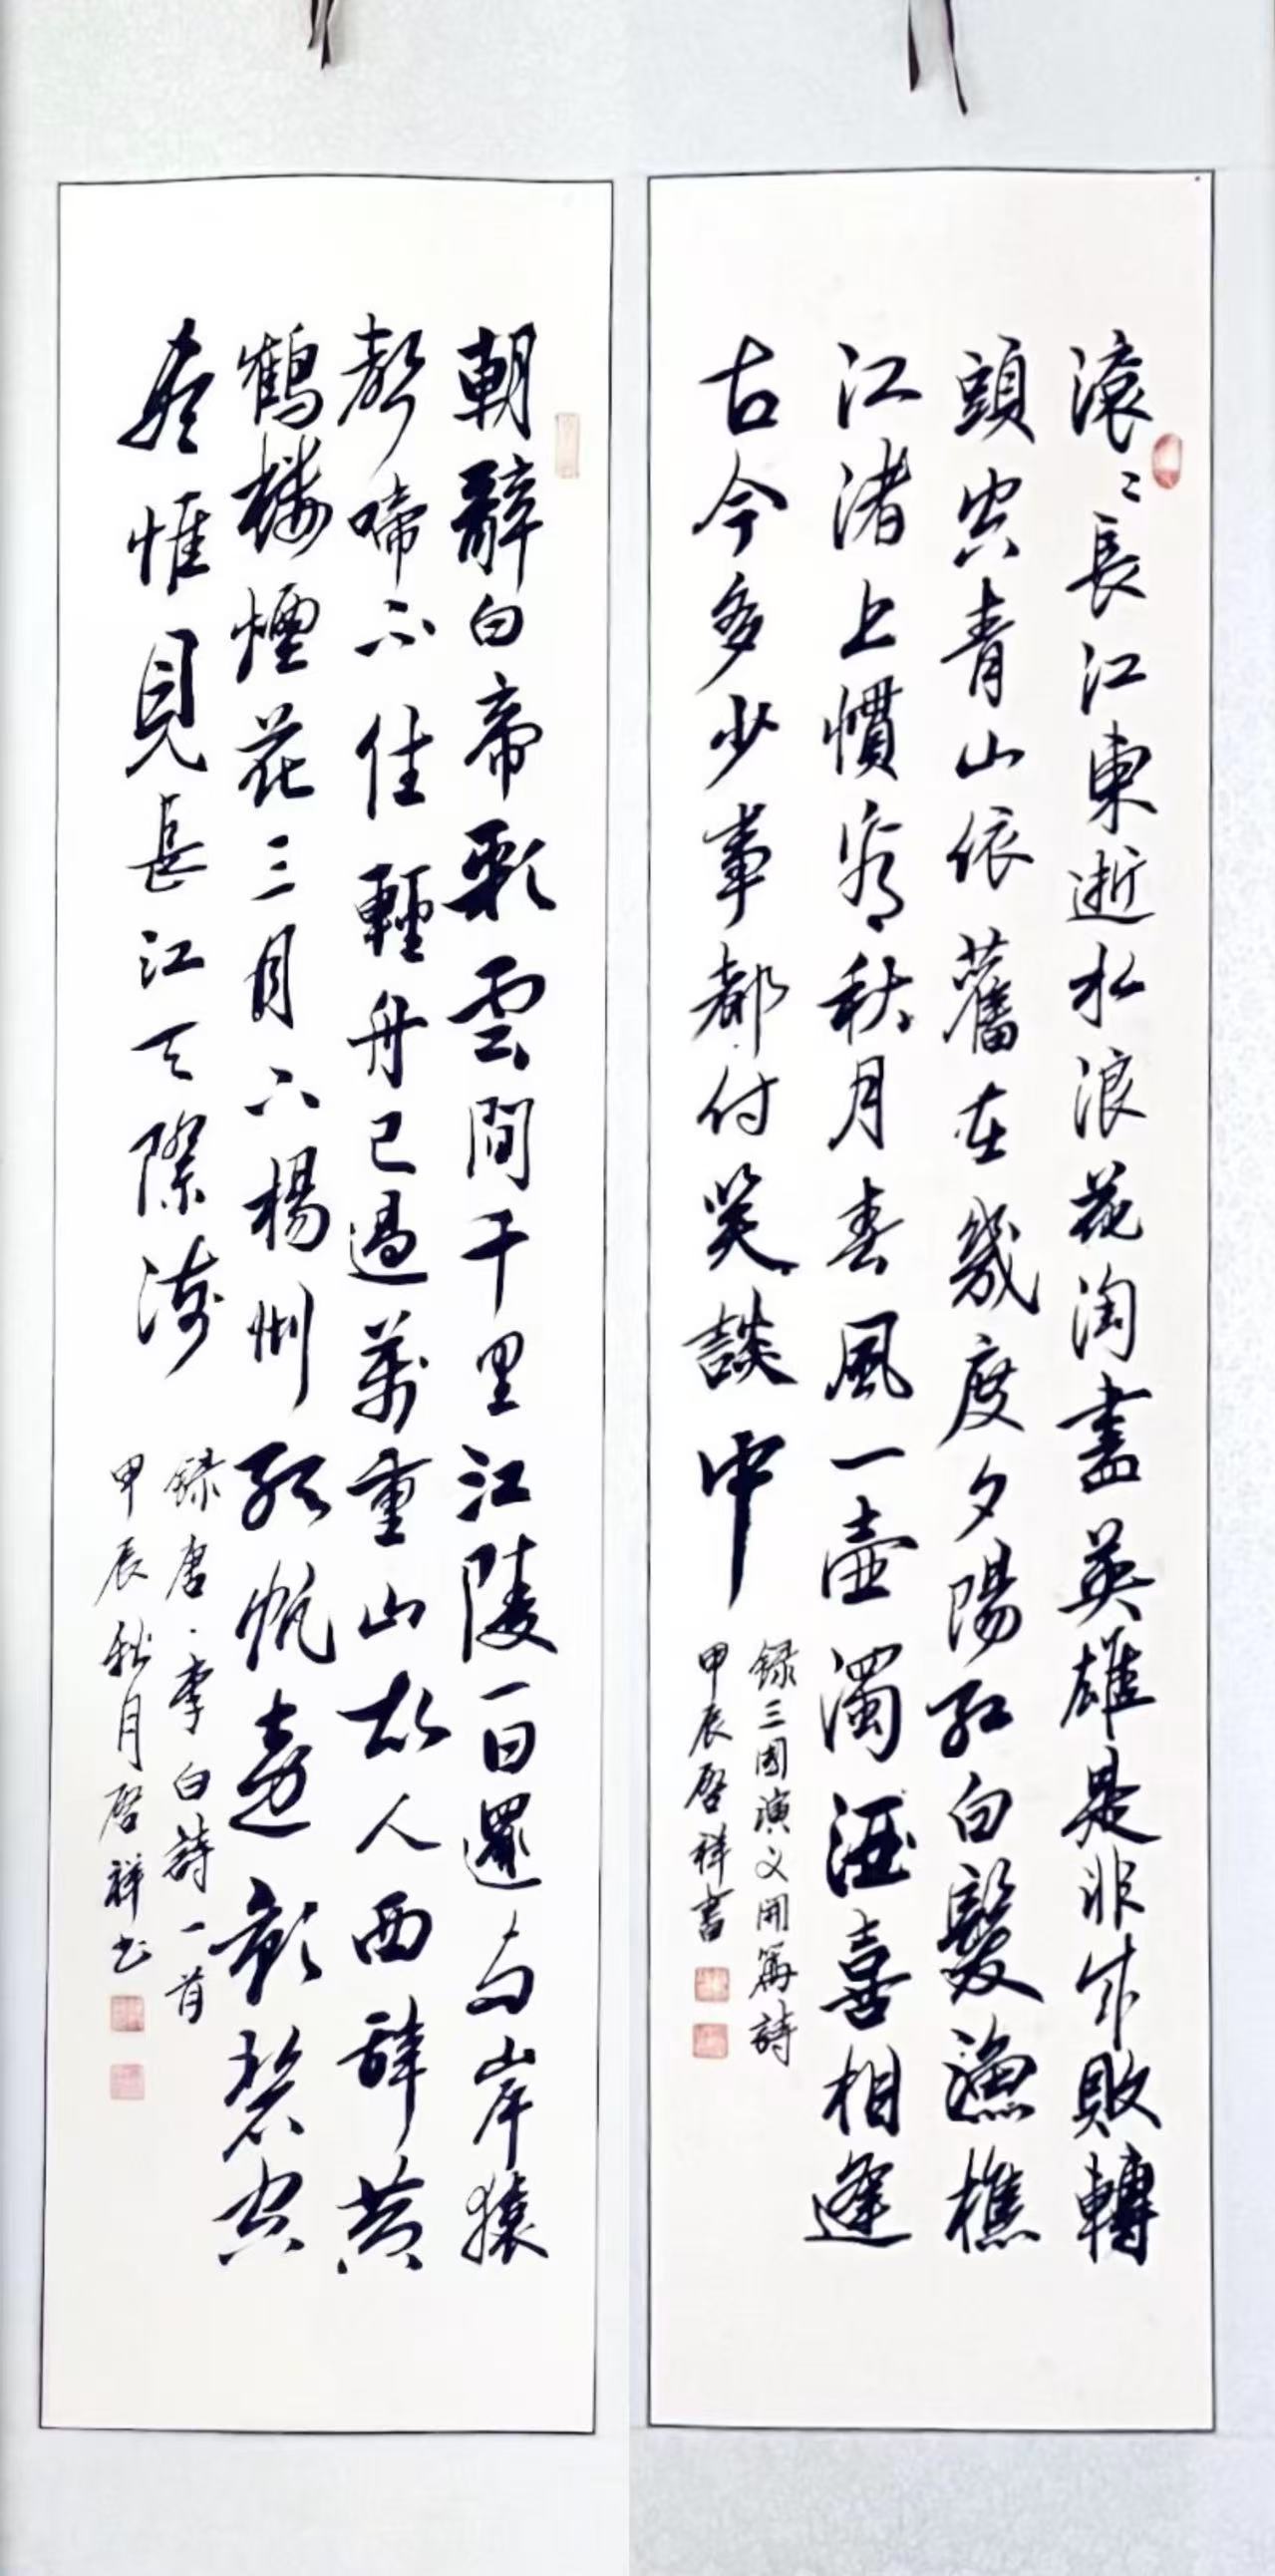 滾〻長江東逝水浪花淘盡英雄是非成敗轉
頭空青山依舊在幾度夕陽紅白髮漁樵
江渚上慣看秋月春風一壺濁酒喜相逢
古今多少事都付笑談中
録三國演义開篇詩
甲辰啓祥書
朝辭白帝彩雲間千里江陵一日還兩岸猿
聲啼不住輕舟已過萬重山故人西辞黄
鶴樓煙花三月下楊州孤帆遠影碧空
盡惟見長江天際流
録唐·李白詩一首
甲辰秋月啓祥书